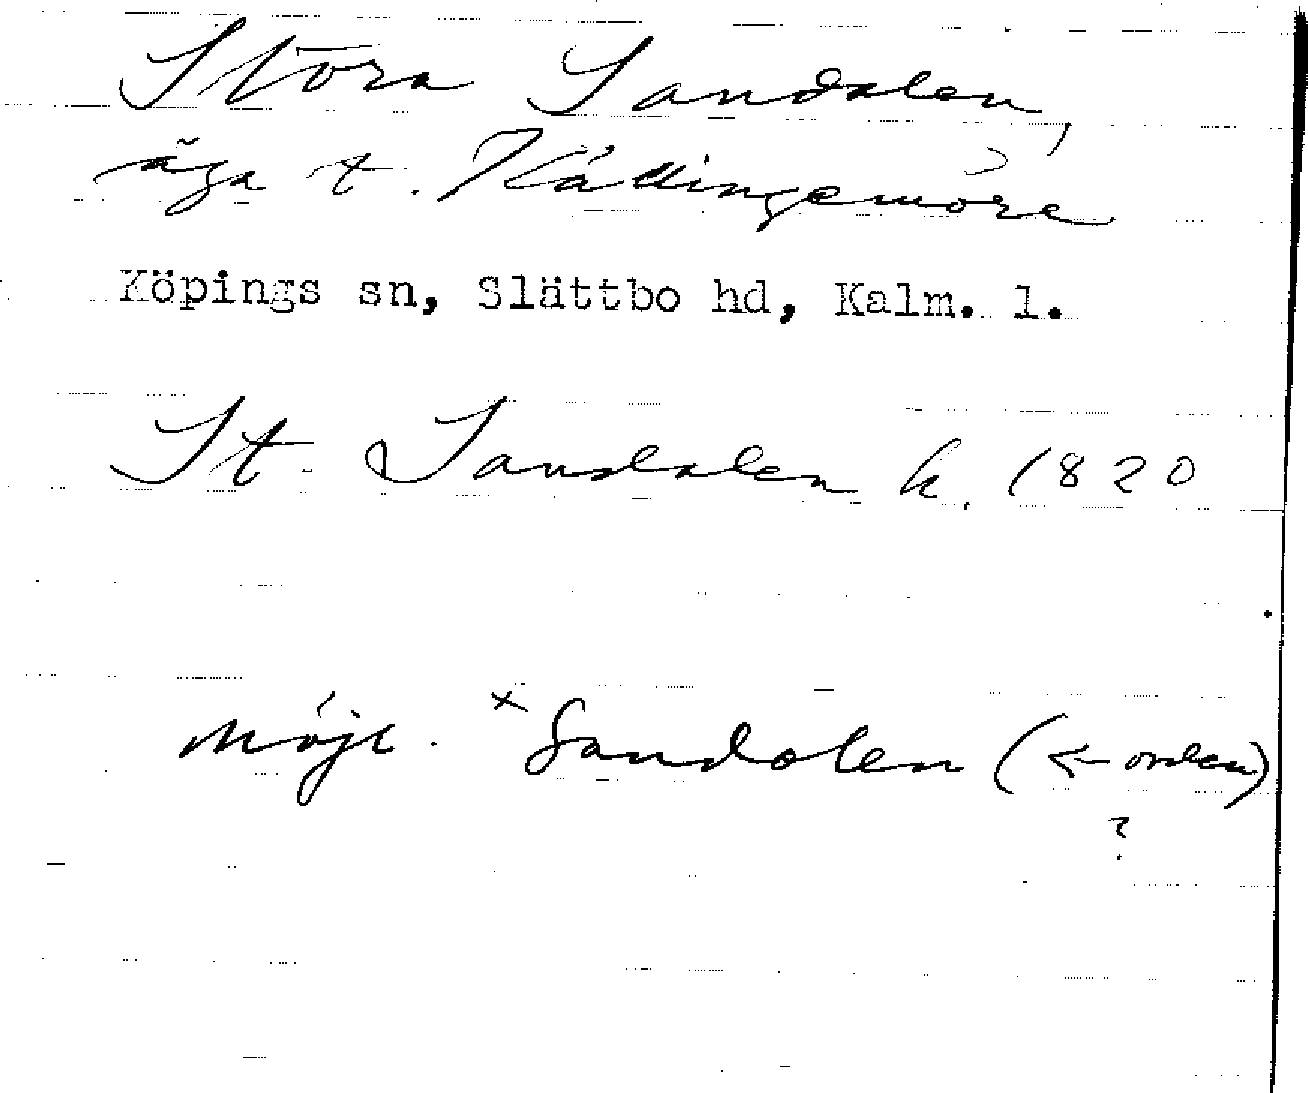 Stora Sandalen,
äga t. Källingemöre
Köpings sn, Slättbo hd, Kalm. l.
St. Sandalen k. 1820
Möjl. ˣSandolen (<- orden)
?